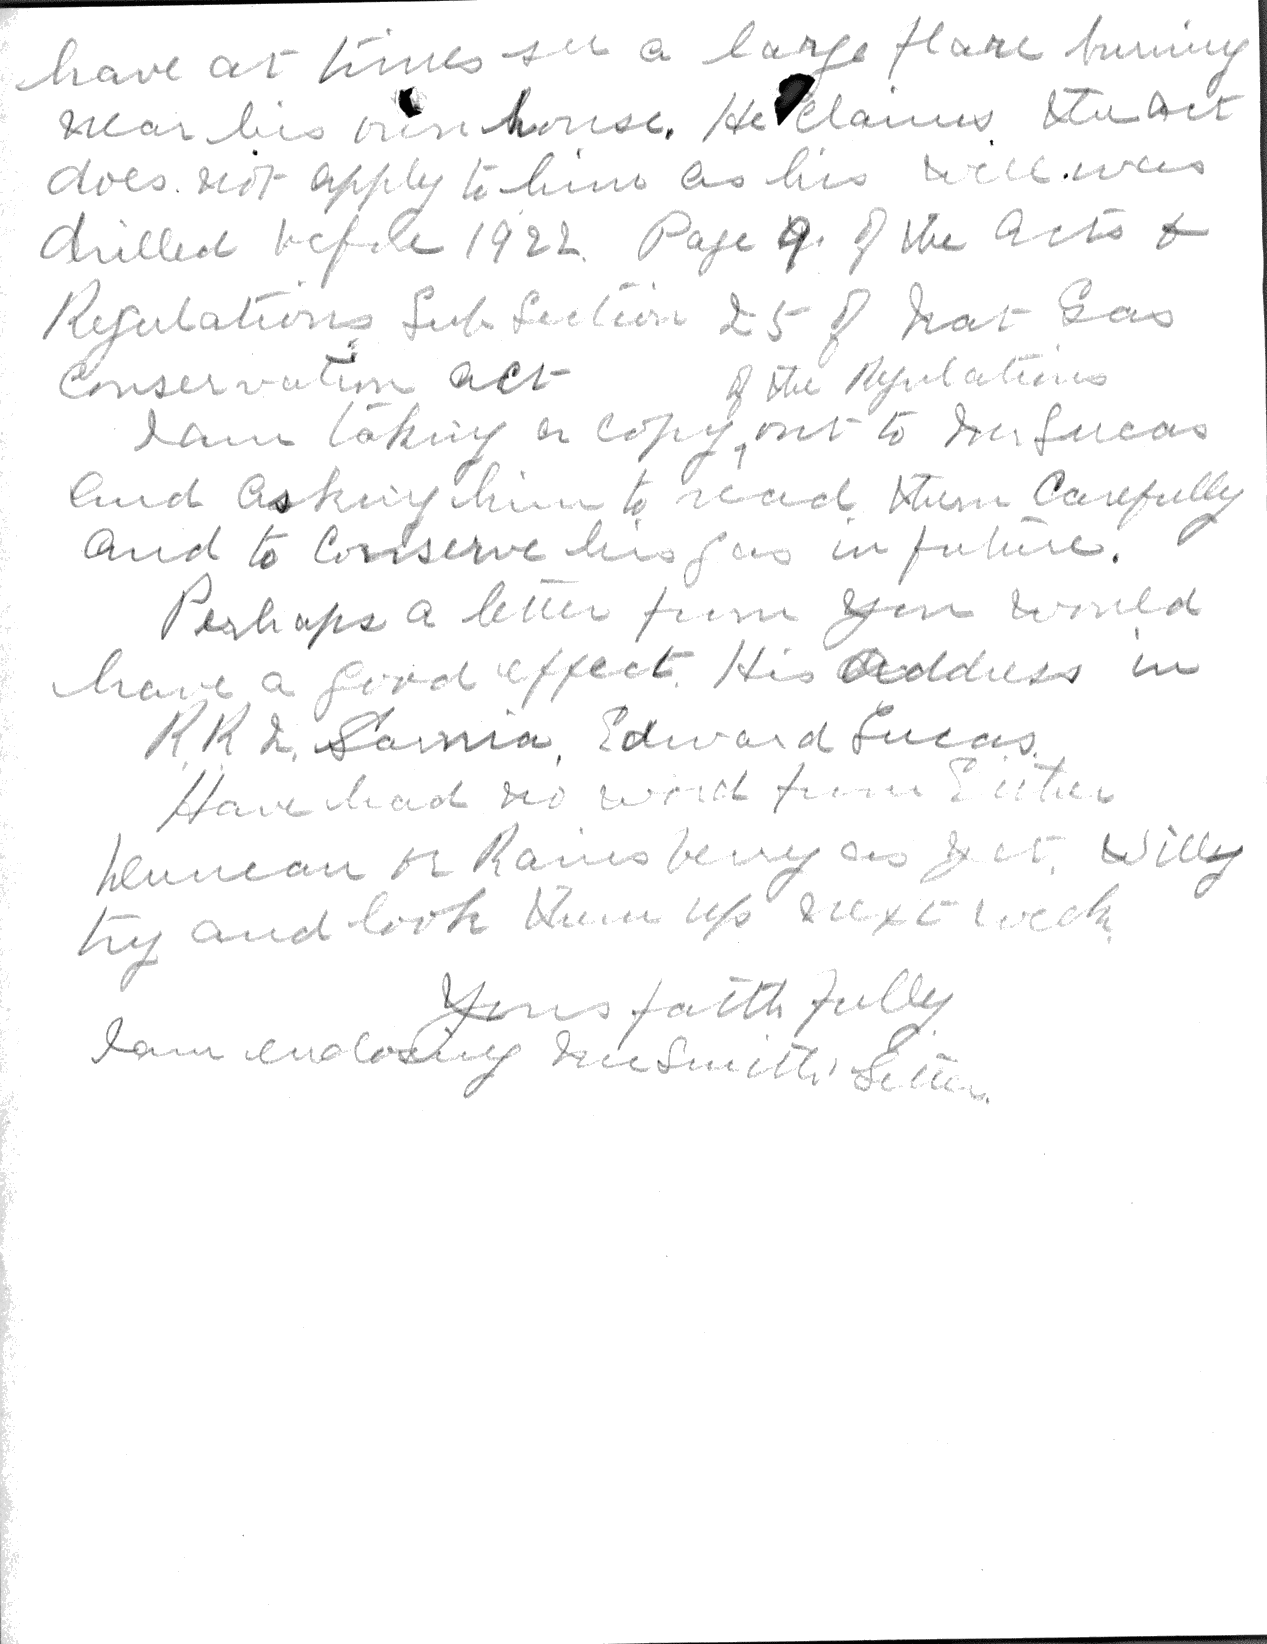 have at times seen a large flare burning
near his own house. He claims the Act
does not apply to him as his well was
drilled before 1922. Page 9 of the Acts &
Regulations Sub Section 25 of Nat Gas
Conservation Act
of the Regulations
I am taking a copy out to Mr Lucas
and asking him to read them Carefully
and to Conserve his gas in future.
Perhaps a letter from you would
have a good effect. His address in
R.R 2, Sarnia, Edward Lucas.
Have had no word from Either
Duncan or Rainsberry as yet. Will
try and look them up next week.
Yours faithfully
I am enclosing Mr Smith's Letter.